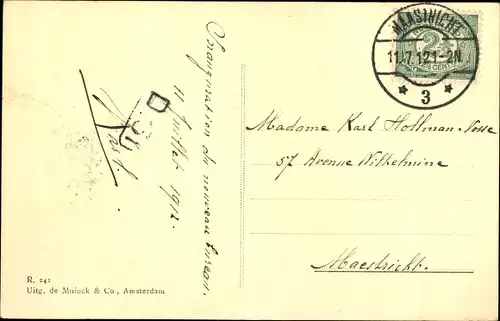 Inauguration du nouveau bureau.
11 Juillet 1912.
MAASTRICHT
11.7.12 1-2N
3
2½
CENT
Madame Karl Hollman-Nosse
57 Avenue Wilhelmine
Maestricht.
R. 241
Uitg. de Muinck & Co., Amsterdam